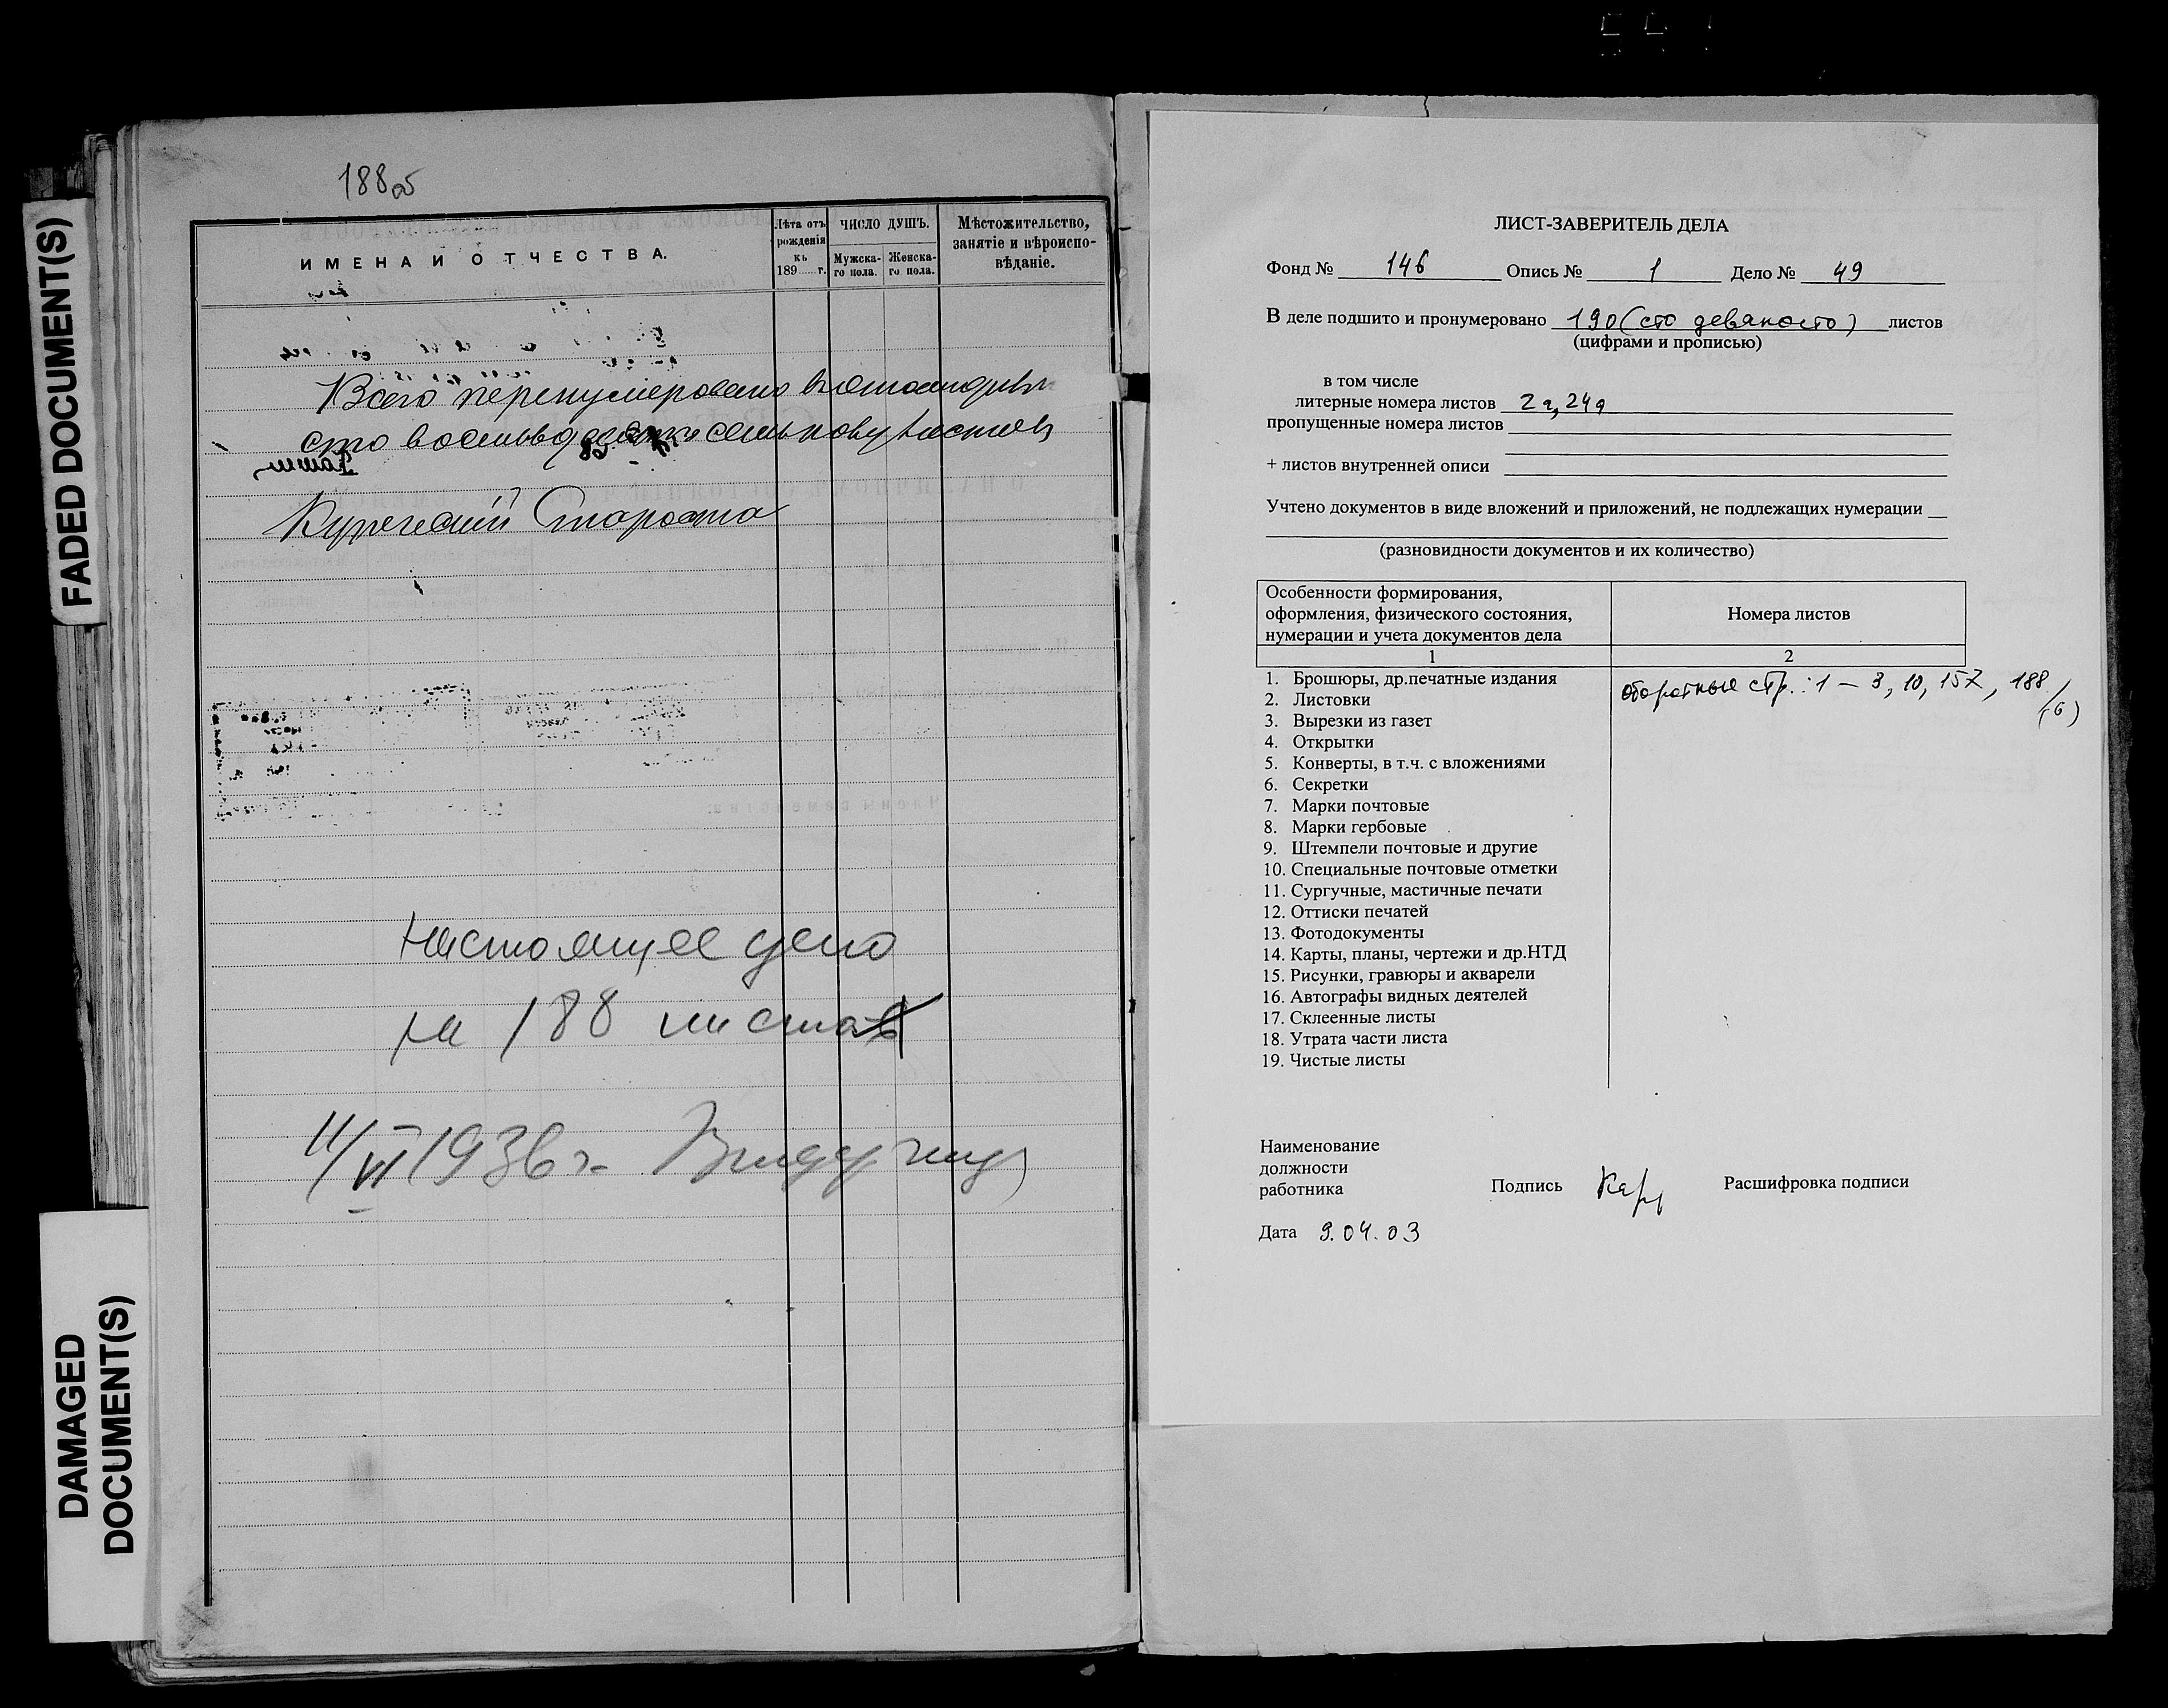 FADED DOCUMENT(S)
DAMAGED
DOCUMENT(S)
188об
ИМЕНА И ОТЧЕСТВА.
Лѣта отъ
рожденія
къ
189 г.
ЧИСЛО ДУШЪ.
Мужска-
го пола.
Женска-
го пола.
Мѣстожительство,
занятіе и вѣроиспо-
вѣданіе.
Всего перенумеровано
сто восемьдесятъ семь листовъ
Купеческій Староста
Настоящее дело
на 188 листов
11/VI 1936 г.
ЛИСТ-ЗАВЕРИТЕЛЬ ДЕЛА
Фонд № 146 Опись № 1 Дело № 49
В деле подшито и пронумеровано 190 (сто девяносто) листов
(цифрами и прописью)
в том числе
литерные номера листов 2а, 24а
пропущенные номера листов
+ листов внутренней описи
Учтено документов в виде вложений и приложений, не подлежащих нумерации
(разновидности документов и их количество)
Особенности формирования,
оформления, физического состояния,
нумерации и учета документов дела
Номера листов
1 2
1. Брошюры, др.печатные издания
оборотные стр.: 1 – 3, 10, 157, 188
(6)
2. Листовки
3. Вырезки из газет
4. Открытки
5. Конверты, в т.ч. с вложениями
6. Секретки
7. Марки почтовые
8. Марки гербовые
9. Штемпели почтовые и другие
10. Специальные почтовые отметки
11. Сургучные, мастичные печати
12. Оттиски печатей
13. Фотодокументы
14. Карты, планы, чертежи и др.НТД
15. Рисунки, гравюры и акварели
16. Автографы видных деятелей
17. Склеенные листы
18. Утрата части листа
19. Чистые листы
Наименование
должности
работника Подпись Расшифровка подписи
Дата 9.04.03